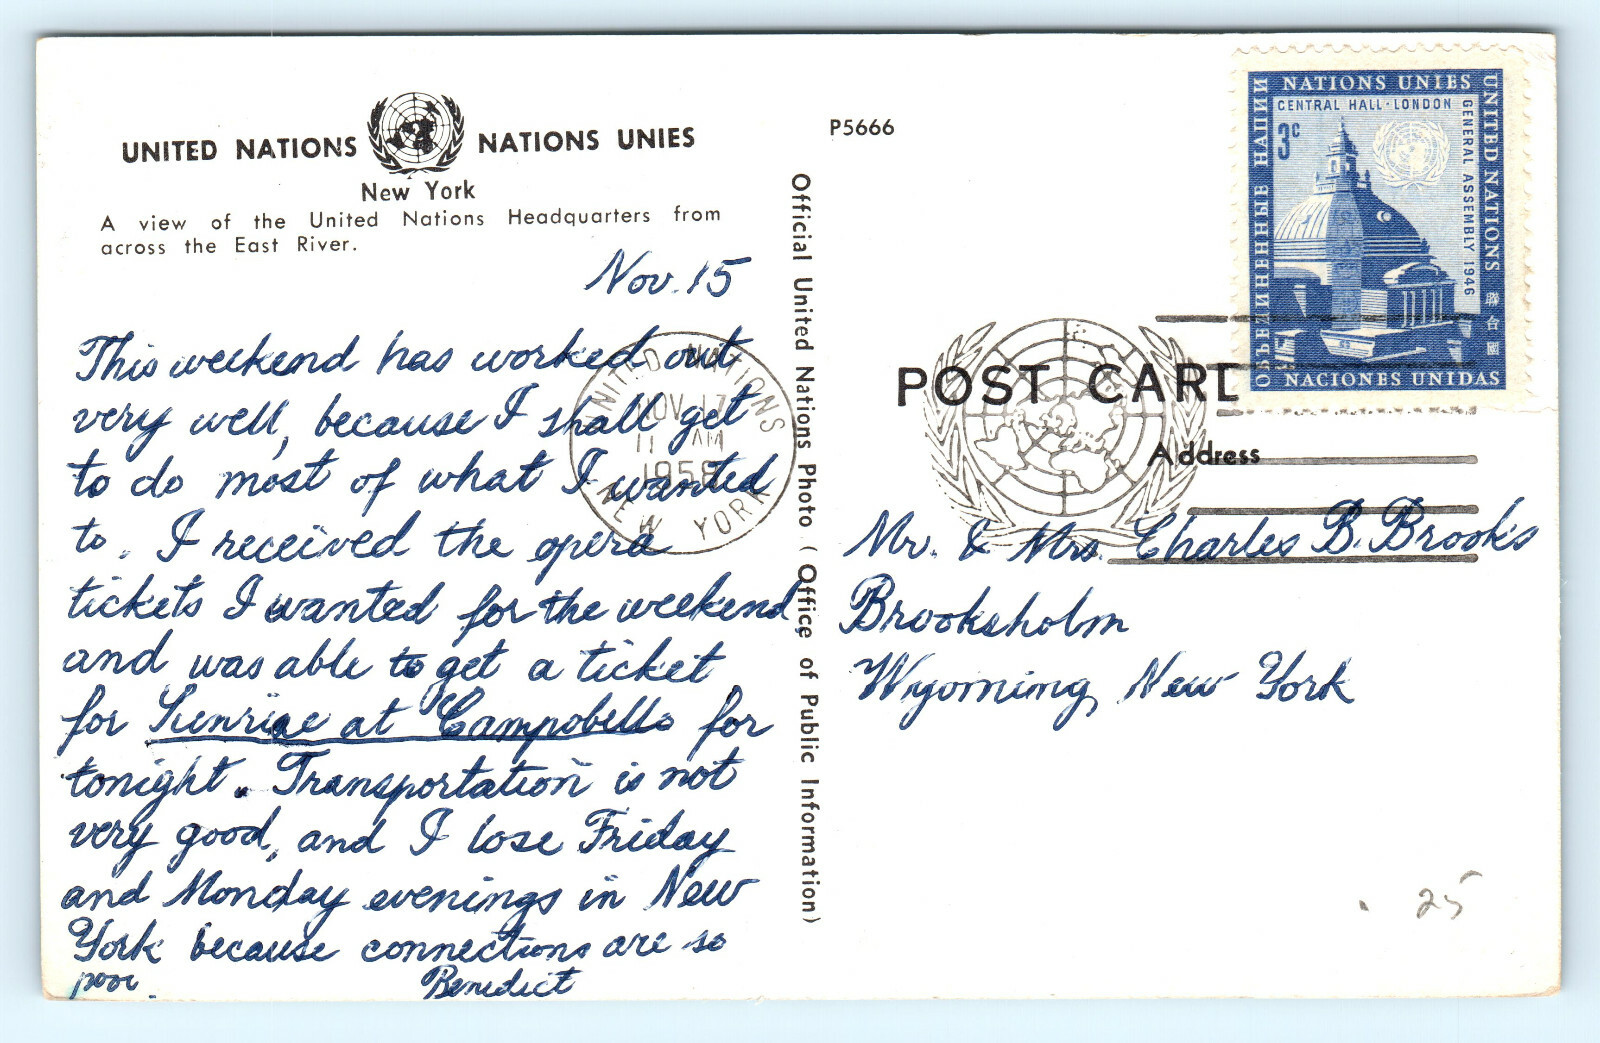 UNITED NATIONS NATIONS UNIES
New York
A view of the United Nations Headquarters from
across the East River.
Nov. 15
This weekend has worked out
very well, because I shall get
to do most of what I wanted
to. I received the opera
tickets I wanted for the weekend,
and was able to get a ticket
for Sunrise at Campobello for
tonight. Transportation is not
very good, and I lose Friday
and Monday evenings in New
York because connections are so
poor.
Benedict
UNITED NATIONS
NOV 17
11 AM
1958
NEW YORK
Official United Nations Photo (Office of Public Information)
P5666
POST CARD
Address
Mr. & Mrs. Charles B. Brooks
Brooksholm
Wyoming, New York
25
NATIONS UNIES
CENTRAL HALL - LONDON
3c
GENERAL ASSEMBLY 1946
UNITED NATIONS
聯合國
ОБЪЕДИНЕННЫЕ НАЦИИ
NACIONES UNIDAS